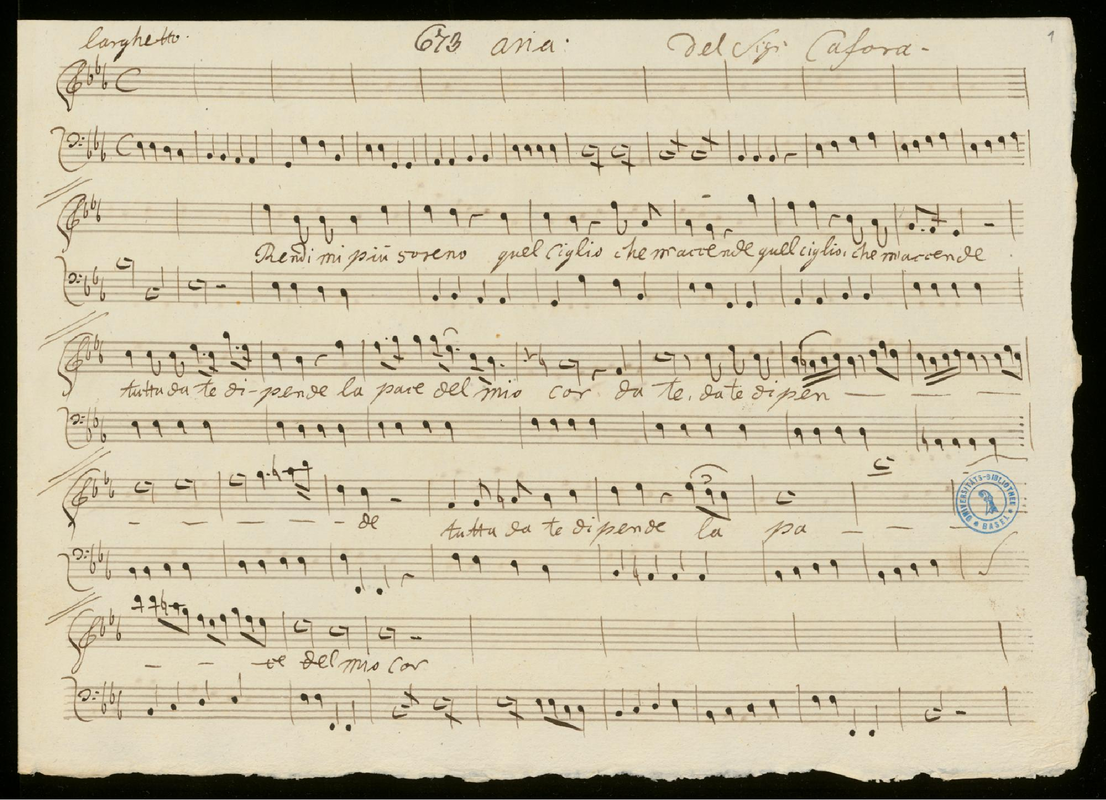 larghetto. 673 aria: Del Sig: Cafora - 1
Rendi mi più soreno quel Ciglio che m'accende quel ciglio, che m'accende
tutta da te di-pende la pace del mio cor da te, da te dipen — — —
— — — — - de tutta da te dipende la pa — — —
UNIVERSITÄTS-BIBLIOTHEK BASEL
— — ce del mio cor